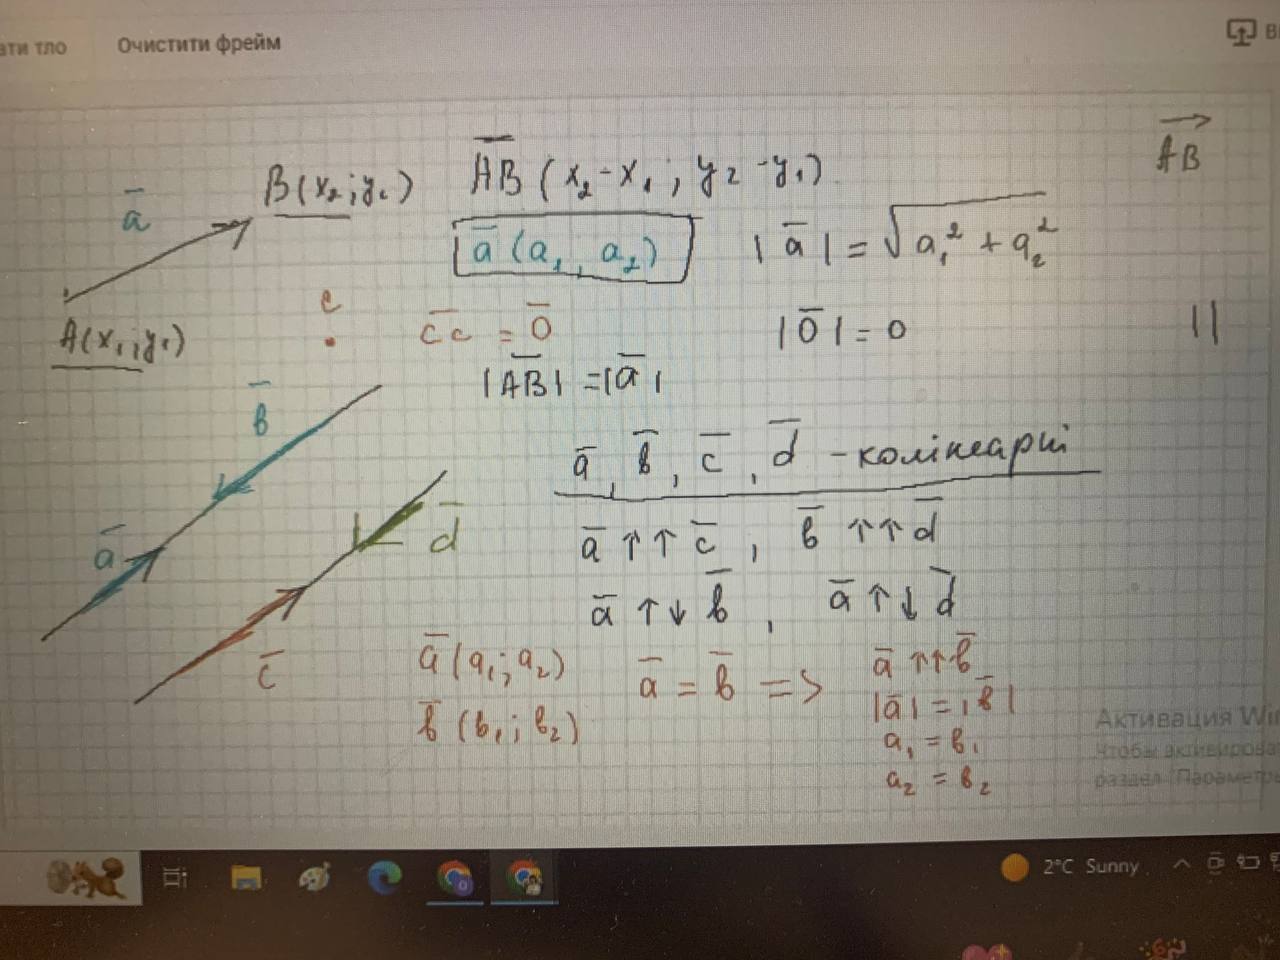 ати тло Очистити фрейм
a̅
B(x₂; y₂)
A̅B̅ (x₂-x₁; y₂-y₁)
A͞B⃗
a̅ (a₁; a₂)
|a̅| = √a₁² + a₂²
A(x₁; y₁)
c
c̅c̅ = 0̅
|0̅| = 0
||
|A̅B̅| = |a̅|
b̅
a̅, b̅, c̅, d̅ - колінеарні
a̅
d̅
a̅ ↑↑ c̅, b̅ ↑↑ d̅
a̅ ↑↓ b̅, a̅ ↑↓ d̅
c̅
a̅ (a₁; a₂)
b̅ (b₁; b₂)
a̅ = b̅ =>
a̅ ↑↑ b̅
|a̅| = |b̅|
a₁ = b₁
a₂ = b₂
Активация Win
Чтобы активирова
раздел "Параметры
2°C Sunny